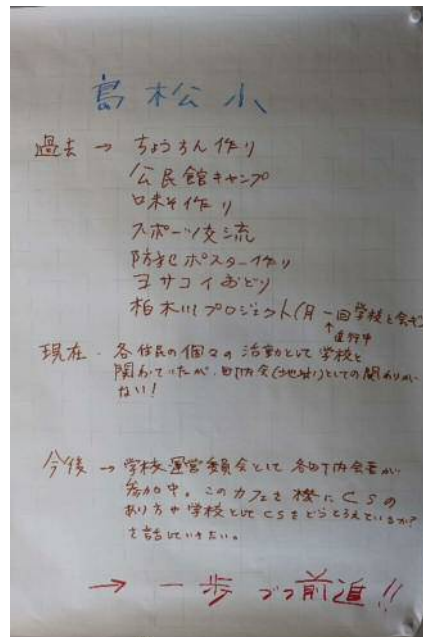 島松小
過去 → ちょうちん作り
公民館キャンプ
口味そ作り
スポーツ交流
防犯ポスター作り
ヨサコイおどり
柏木川プロジェクト(月一回学校と会ギ)
進行中
現在・各住民の個々の活動として学校と
関わっていたが、町内会(地域)としての関わりが
ない!
今後 → 学校運営委員会として各町内会長が
参加中。このカフェを機にCSの
あり方や学校としてCSをどうとらえているか?
を話していきたい。
→ 一歩づつ前進!!